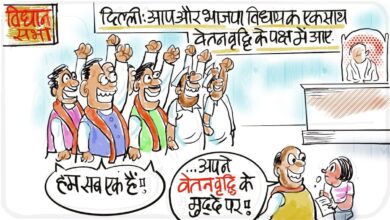 विधान
सभा
दिल्ली: आप और भाजपा विधायक एकसाथ
वेतनवृद्धि के पक्ष में आए.
हम सब एक हैं!!
...अपने
वेतनवृद्धि के
मुद्दे पर!!